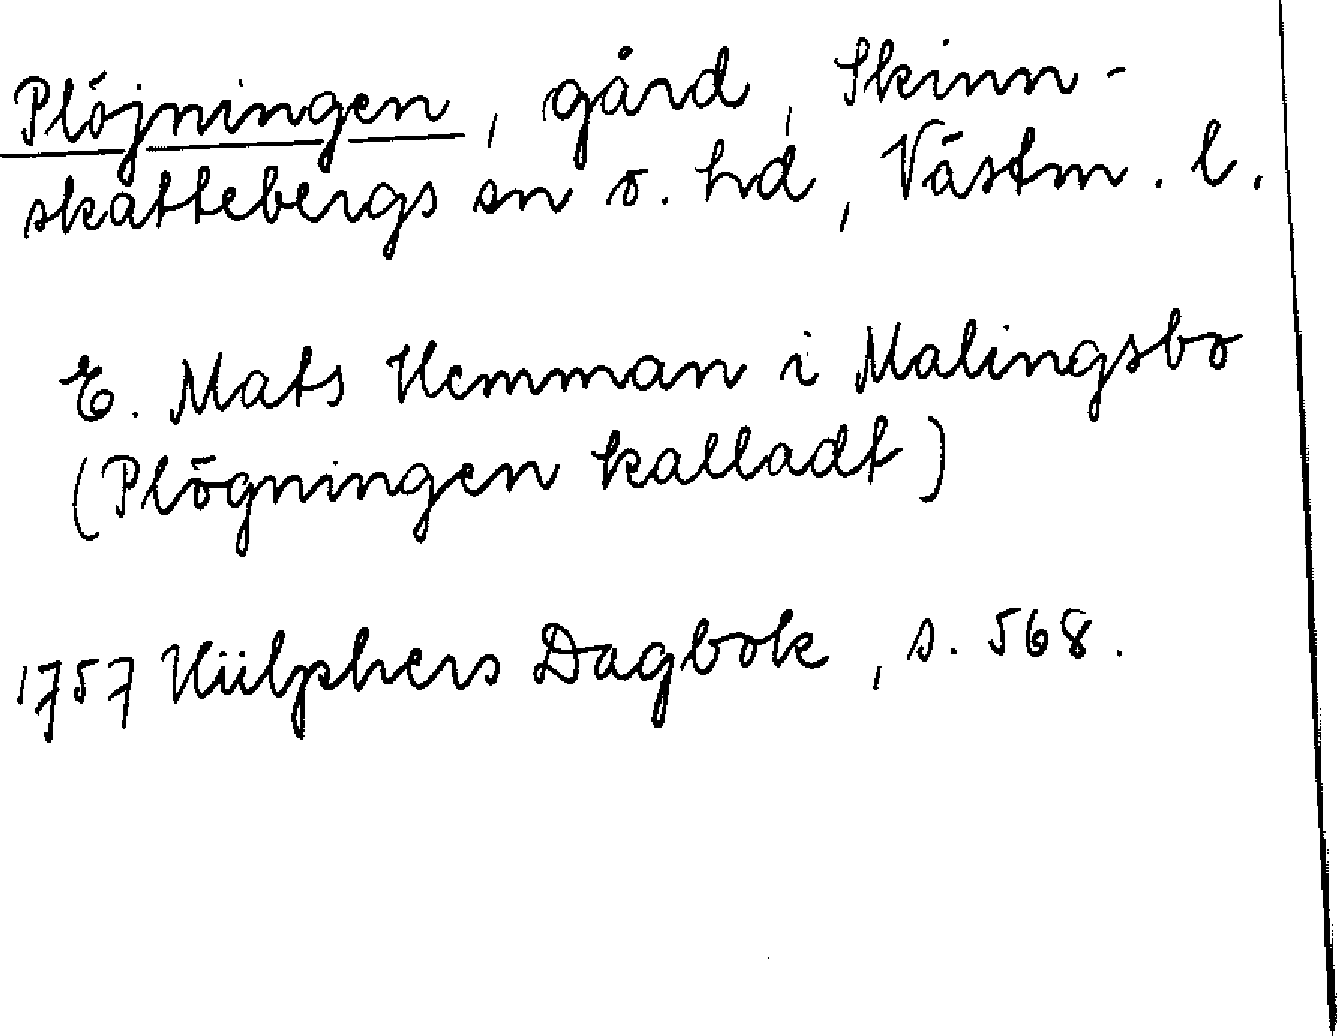 Plöjningen, gård, Skinn-
skattebergs sn o. hd, Västm. l.
E. Mats Hemman i Malingsbo
(Plögningen kalladt)
1757 Hülphers Dagbok, s. 568.